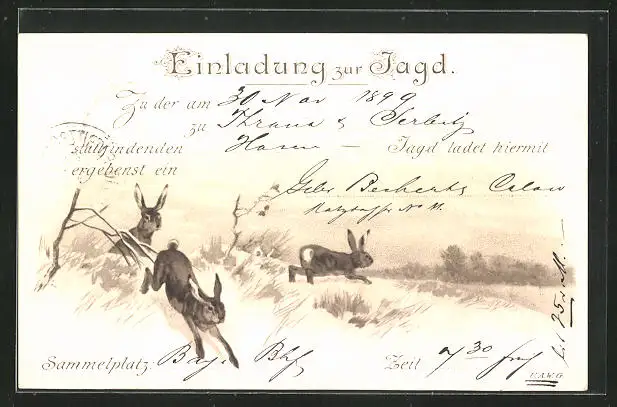 Einladung zur Jagd.
Zu der am 30 Nov 1899
zu Thrana & Serbitz
stattfindenden Hasen — Jagd ladet hiermit
ergebenst ein
Gebr
No 11.
Sammelplatz: Bhf Zeit 7 30 früh
E.A.W.G.